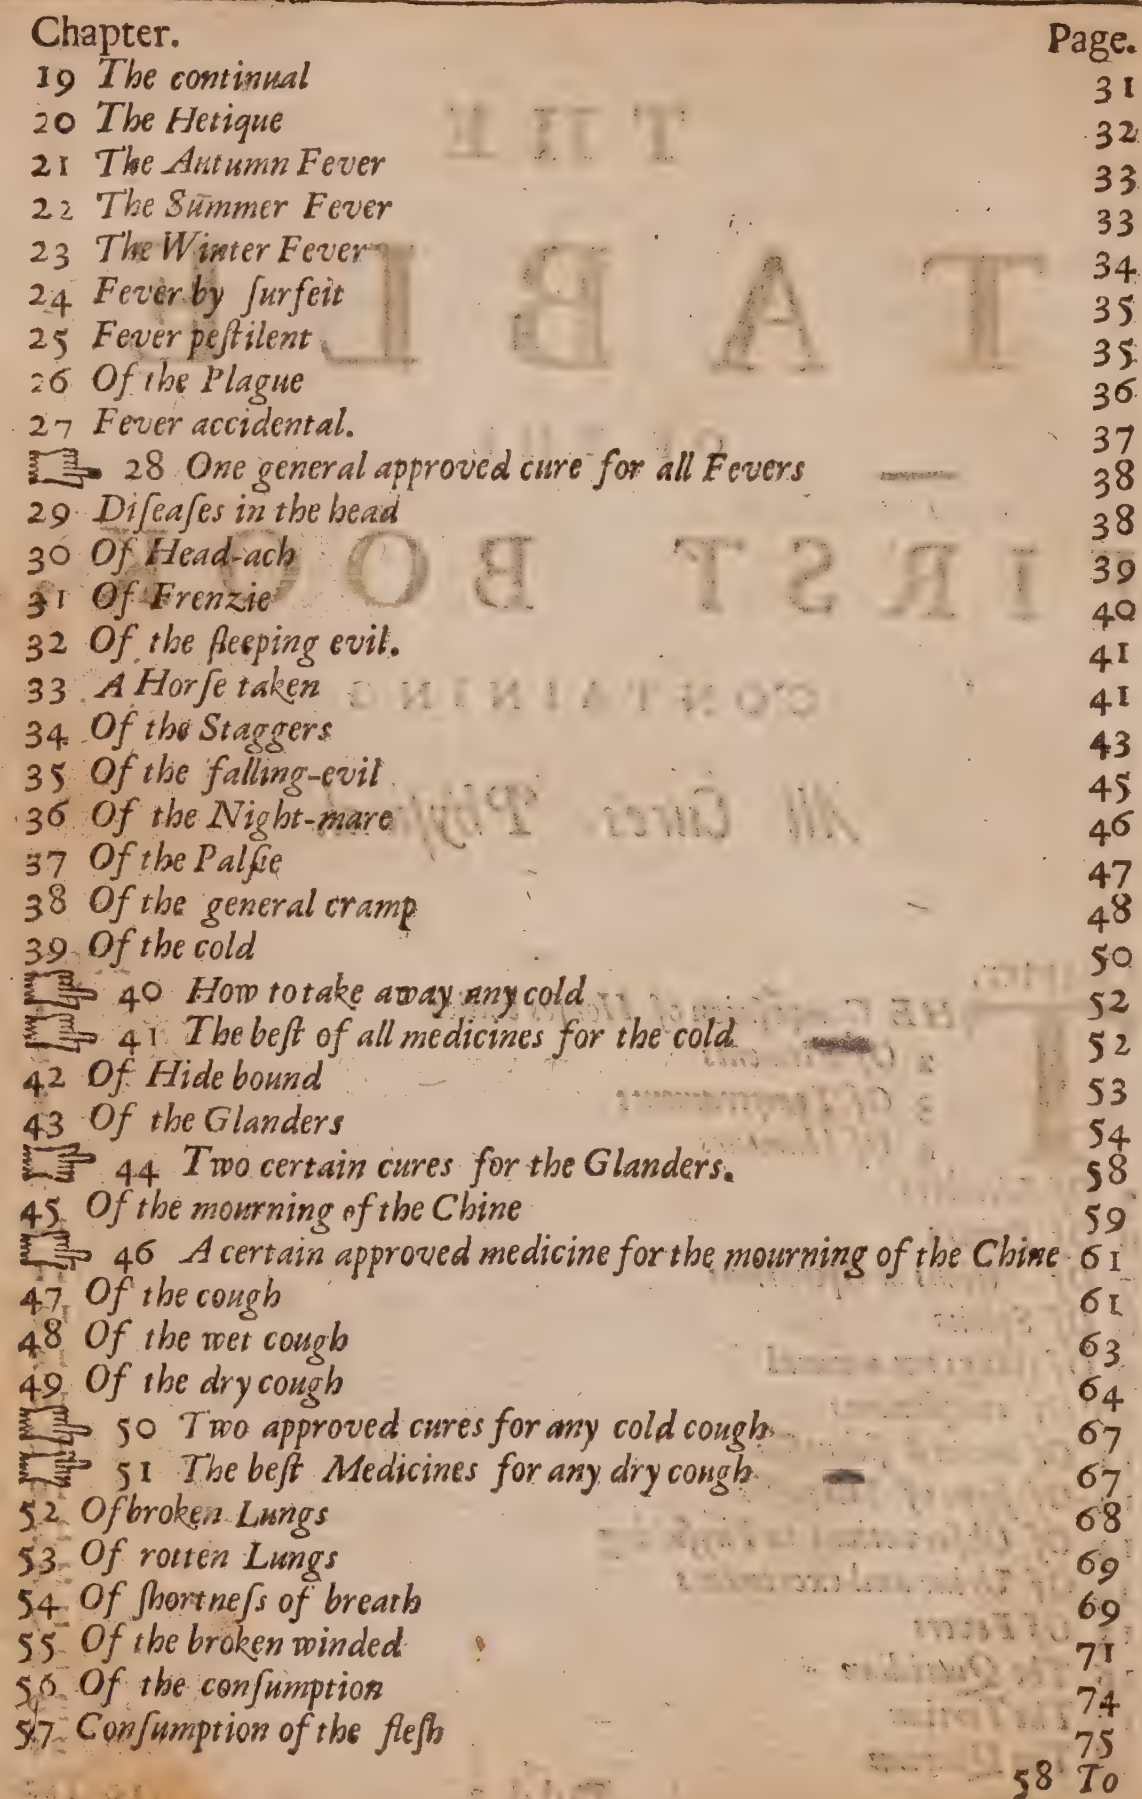 Chapter. Page.
19 The continual 31
20 The Hetique 32
21 The Autumn Fever 33
22 The Sūmmer Fever 33
23 The Winter Fever 34
24 Fever by ſurfeit 35
25 Fever peſtilent 35
26 Of the Plague 36
27 Fever accidental. 37
☞ 28 One general approved cure for all Fevers 38
29 Diſeaſes in the head 38
30 Of Head-ach 39
31 Of Frenzie 40
32 Of the ſleeping evil. 41
33 A Horſe taken 41
34 Of the Staggers 43
35 Of the falling-evil 45
36 Of the Night-mare 46
37 Of the Palſie 47
38 Of the general cramp 48
39 Of the cold 50
☞ 40 How to take away any cold 52
☞ 41 The beſt of all medicines for the cold 52
42 Of Hide bound 53
43 Of the Glanders 54
☞ 44 Two certain cures for the Glanders. 58
45 Of the mourning of the Chine 59
☞ 46 A certain approved medicine for the mourning of the Chine 61
47 Of the cough 61
48 Of the wet cough 63
49 Of the dry cough 64
☞ 50 Two approved cures for any cold cough 67
☞ 51 The beſt Medicines for any dry cough 67
52 Of broken Lungs 68
53 Of rotten Lungs 69
54 Of ſhortneſs of breath 69
55 Of the broken winded 71
56 Of the conſumption 74
57 Conſumption of the fleſh 75
58 To